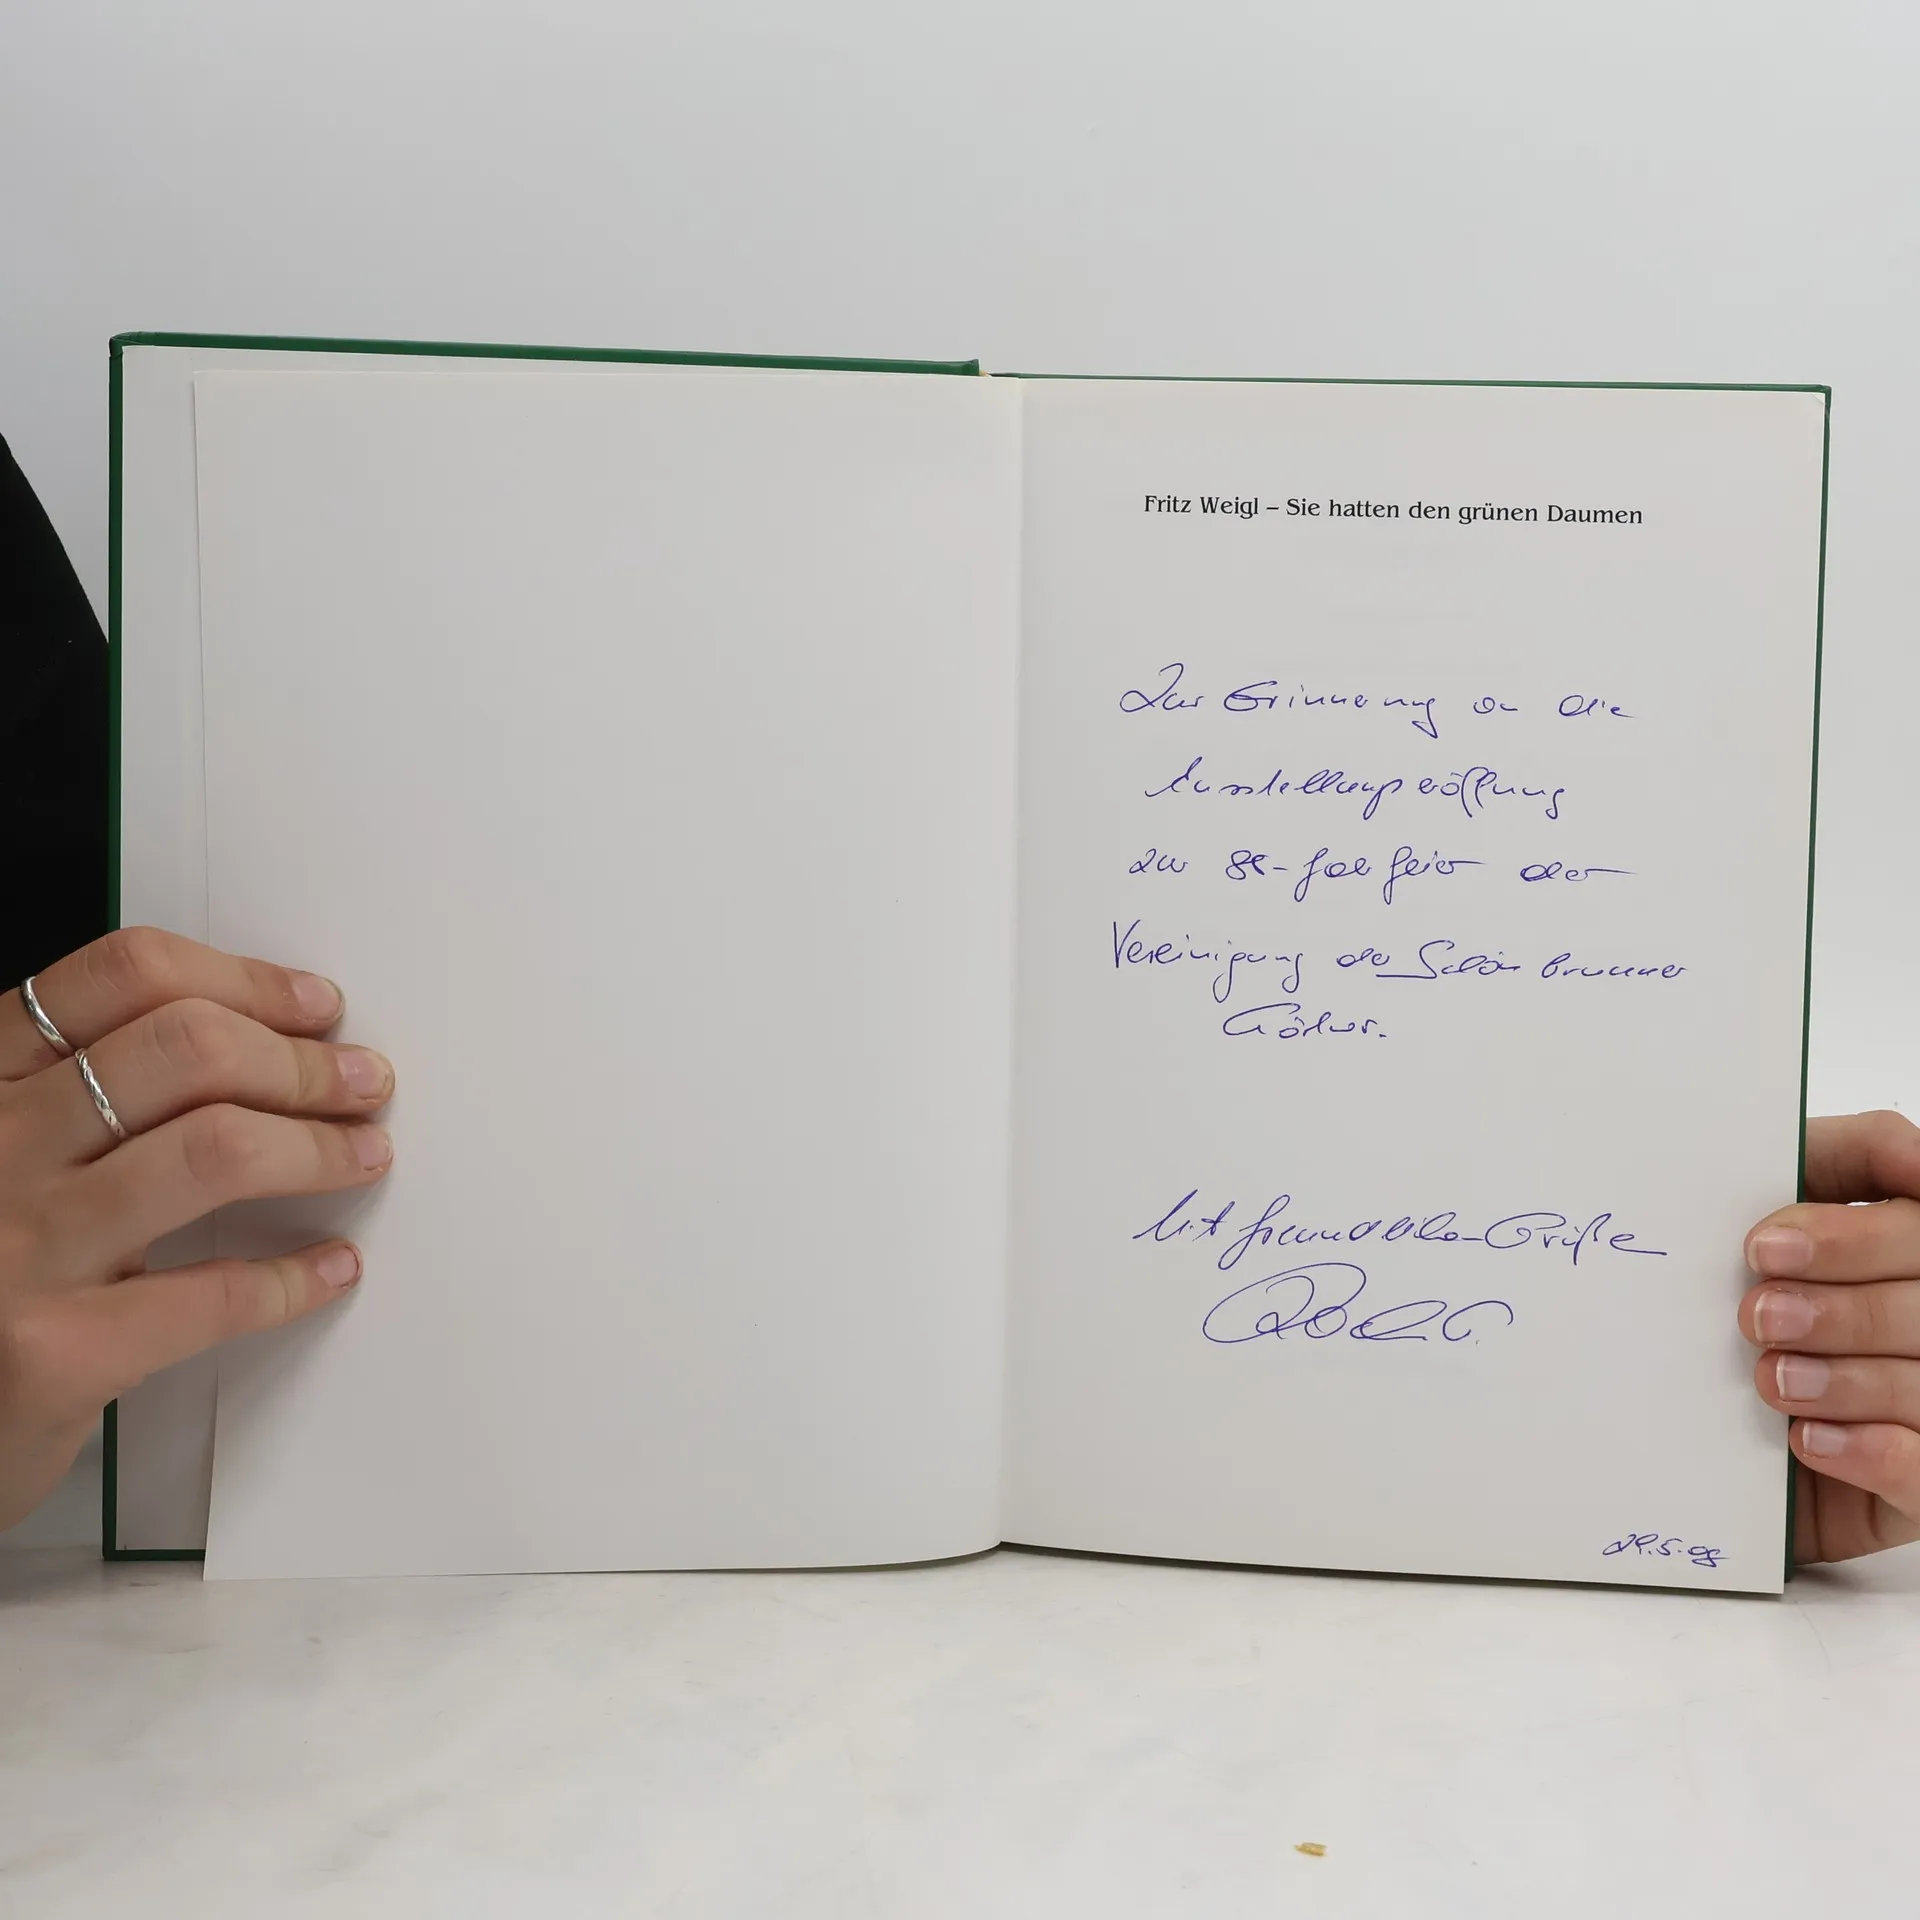 Fritz Weigl – Sie hatten den grünen Daumen
Zur Erinnerung an die
Ausstellungseröffnung
zur 85-Jahrfeier der
Vereinigung der Schönbrunner
Gärtner.
Mit freundlichen Grüßen
29.5.98